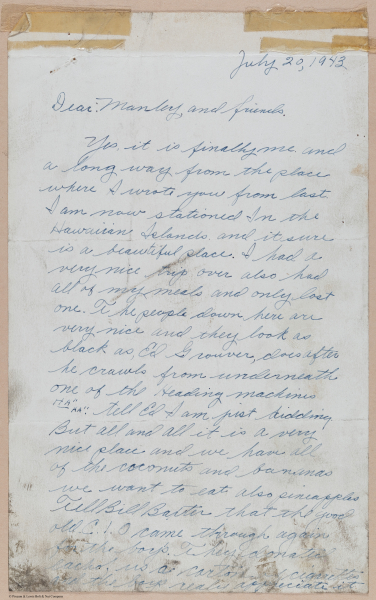 July 20, 1943
Dear: Manley, and friends.
Yes, it is finally me and
a long way from the place
where I wrote you from last
I am now stationed In the
Hawaiian Islands and it sure
is a beautiful place. I had a
very nice trip over also had
all of my meals and only lost
one. The people down here are
very nice and they look as
black as, Ed Grouver, does after
he crawls from underneath
one of the Heading machines
"HA" "HA": tell Ed I am just kidding
But all and all it is a very
nice place and we have all
of the coconuts and bananas
we want to eat also pineapples
Tell Bill Baxter that the good
old C.I.O came through again
on the boat. They donated
each us a carton of cigarettes